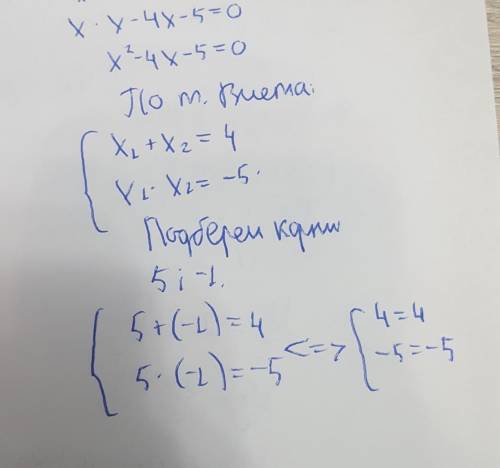 x · x - 4x - 5 = 0
x² - 4x - 5 = 0
По т. Виета:
{ x₁ + x₂ = 4
x₁ · x₂ = -5.
Подберем корни
5 ; -1.
{ 5 + (-1) = 4
5 · (-1) = -5
<=> { 4 = 4
-5 = -5